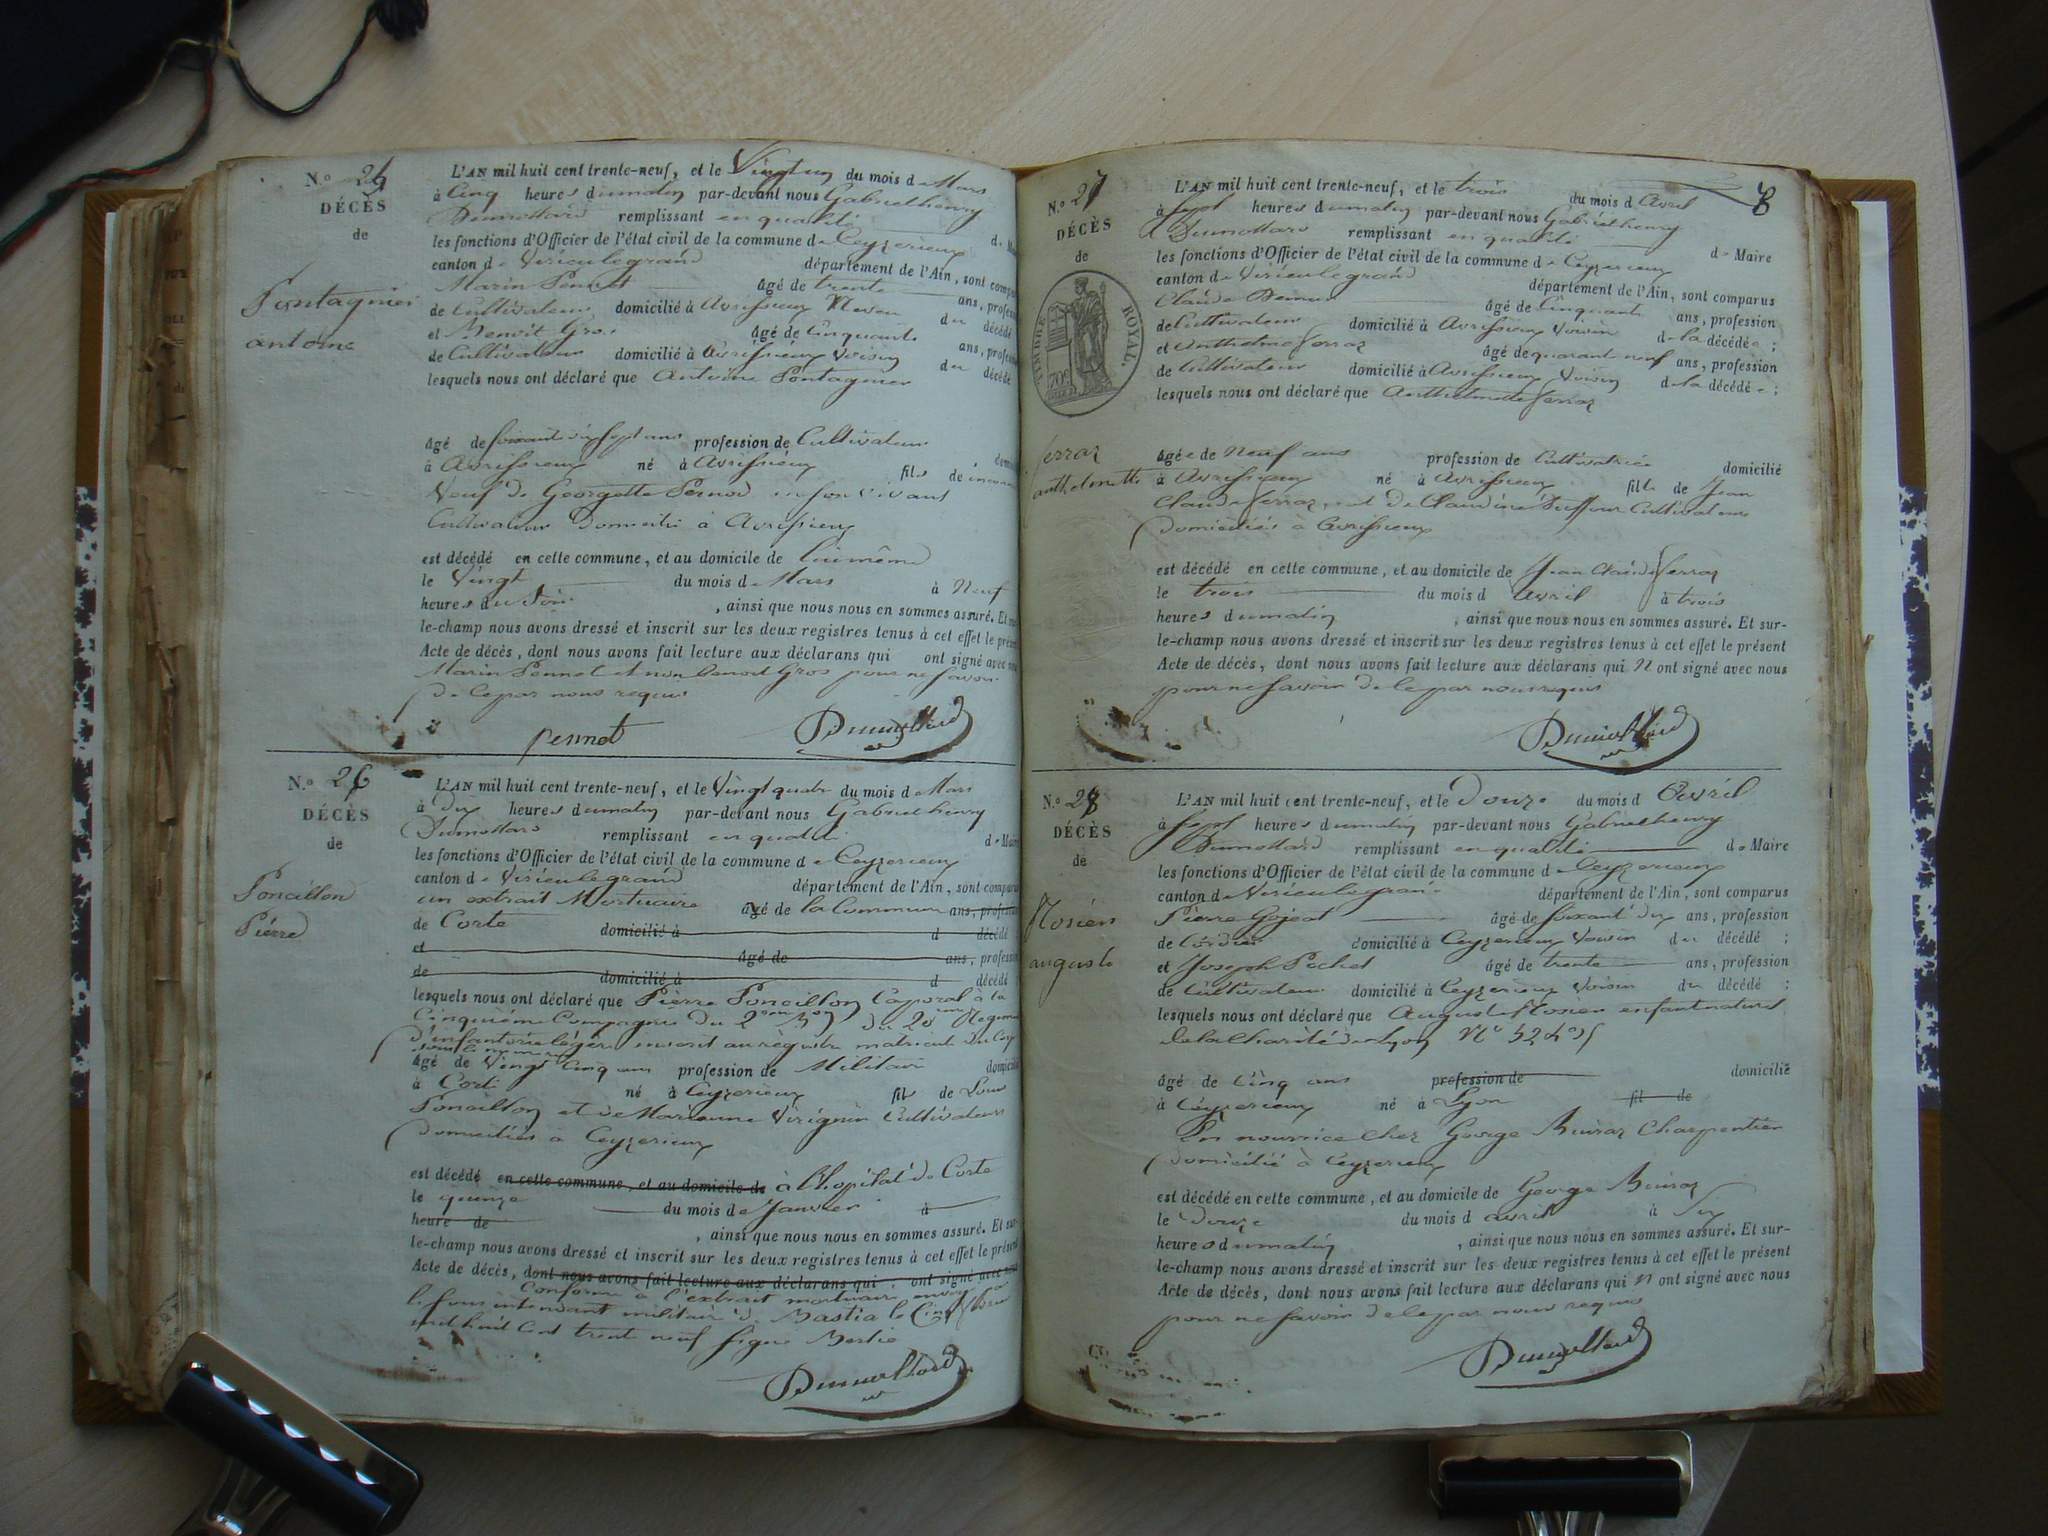 N.o 25
DÉCÈS
de
Pontagnier
antoine
L'AN mil huit cent trente-neuf, et le Vingt un du mois de Mars
à Cinq heures du matin par-devant nous Gabriel henry
Dumollard remplissant en qualité de Maire
les fonctions d'Officier de l'état civil de la commune de Ceyzerieux
canton de Virieu le grand département de l'Ain, sont compar
Marin Pennet âgé de trente ans, profess
de Cultivateur domicilié à Avrissieux Neveu du décédé
et Benoit Gros âgé de Cinquante ans, profess
de Cultivateur domicilié à Avrissieux Voisin du décédé
lesquels nous ont déclaré que Antoine Pontagnier
âgé de soixante dix sept ans profession de Cultivateur
à Avrissieux né à Avrissieux fils de
Veuf de Georgette Pernod en son vivant
Cultivateur Domicilié à Avrissieux
est décédé en cette commune, et au domicile de lui même
le Vingt du mois de Mars à Neuf
heures du Soir, ainsi que nous nous en sommes assuré. Et
le-champ nous avons dressé et inscrit sur les deux registres tenus à cet effet le présent
Acte de décès, dont nous avons fait lecture aux déclarans qui ont signé avec
Marin Pennet et non Benoit Gros pour ne savoir
de ce par nous requis
pennet Dumollard
N.o 26
DÉCÈS
de
Poncillon
Pierre
L'AN mil huit cent trente-neuf, et le Vingt quatre du mois de Mars
à Dix heures du matin par-devant nous Gabriel henry
Dumollard remplissant en qualité de Maire
les fonctions d'Officier de l'état civil de la commune de Ceyzerieux
canton de Virieu le grand département de l'Ain, sont comparus
un extrait Mortuaire âgé de la Commune ans, profession
de Corte domicilié à d décédé
et âgé de ans, profession
de domicilié à d décédé
lesquels nous ont déclaré que Pierre Poncillon Caporal à la
Cinquième Compagnie du 2eme Bon du 20eme Regiment
d'infanterie légère inscrit au registre matricule du Corp
sous le numero
âgé de Vingt Cinq ans profession de Militaire domicilié
à Corte né à Ceyzerieux fils de Louis
Poncillon et de Marianne Virignin Cultivateurs
domiciliés à Ceyzerieux
est décédé en cette commune, et au domicile de à l'hopital de Corte
le quinze du mois de Janvier à
heure de, ainsi que nous nous en sommes assuré. Et sur-
le-champ nous avons dressé et inscrit sur les deux registres tenus à cet effet le présent
Acte de décès, dont nous avons fait lecture aux déclarans qui ont signé avec nous
Conforme à l'extrait mortuaire
le sous intendant militaire de Bastia le Cinq
mil huit Cent trente neuf signe
Dumollard
8
N.o 27
DÉCÈS
de
TIMBRE ROYAL.
70c
ferraz
anthelmette
L'AN mil huit cent trente-neuf, et le trois du mois d Avril
à Sept heures du matin par-devant nous Gabriel henry
Dumollard remplissant en qualité de Maire
les fonctions d'Officier de l'état civil de la commune de Ceyzerieux
canton de Virieu le grand département de l'Ain, sont comparus
Claude âgé de Cinquante ans, profession
de Cultivateur domicilié à Avrissieux Voisin de la décédée ;
et Anthelme ferraz âgé de quarante neuf ans, profession
de Cultivateur domicilié à Avrissieux Voisin de la décédée ;
lesquels nous ont déclaré que Anthelmette ferraz
âgée de Neuf ans profession de Cultivatrice domicilié
à Avrissieux né à Avrissieux fille de Jean
Claude ferraz, et de Claudine Duffour Cultivateurs
domiciliés à Avrissieux
est décédé en cette commune, et au domicile de Jean Claude ferraz
le trois du mois d Avril à trois
heures du matin, ainsi que nous nous en sommes assuré. Et sur-
le-champ nous avons dressé et inscrit sur les deux registres tenus à cet effet le présent
Acte de décès, dont nous avons fait lecture aux déclarans qui N ont signé avec nous
pour ne savoir de ce par nous requis
Dumollard
N.o 28
DÉCÈS
de
Rosien
auguste
L'AN mil huit cent trente-neuf, et le Douze du mois d Avril
à Sept heures du matin par-devant nous Gabriel henry
Dumollard remplissant en qualité de Maire
les fonctions d'Officier de l'état civil de la commune de Ceyzerieux
canton de Virieu le grand département de l'Ain, sont comparus
Pierre Gojeat âgé de soixante dix ans, profession
de Cordier domicilié à Ceyzerieux Voisin du décédé ;
et Joseph Pichet âgé de trente ans, profession
de Cultivateur domicilié à Ceyzerieux Voisin du décédé ;
lesquels nous ont déclaré que Auguste Rosien enfant naturel
de la Charité de Lyon No
âgé de Cinq ans profession de domicilié
à Ceyzerieux né à Lyon fil de
En nourrice chez George Buiraz Charpentier
domicilié à Ceyzerieux
est décédé en cette commune, et au domicile de George Buiraz
le Douze du mois d avril à Six
heures du matin, ainsi que nous nous en sommes assuré. Et sur-
le-champ nous avons dressé et inscrit sur les deux registres tenus à cet effet le présent
Acte de décès, dont nous avons fait lecture aux déclarans qui N ont signé avec nous
pour ne savoir de ce par nous requis
Dumollard